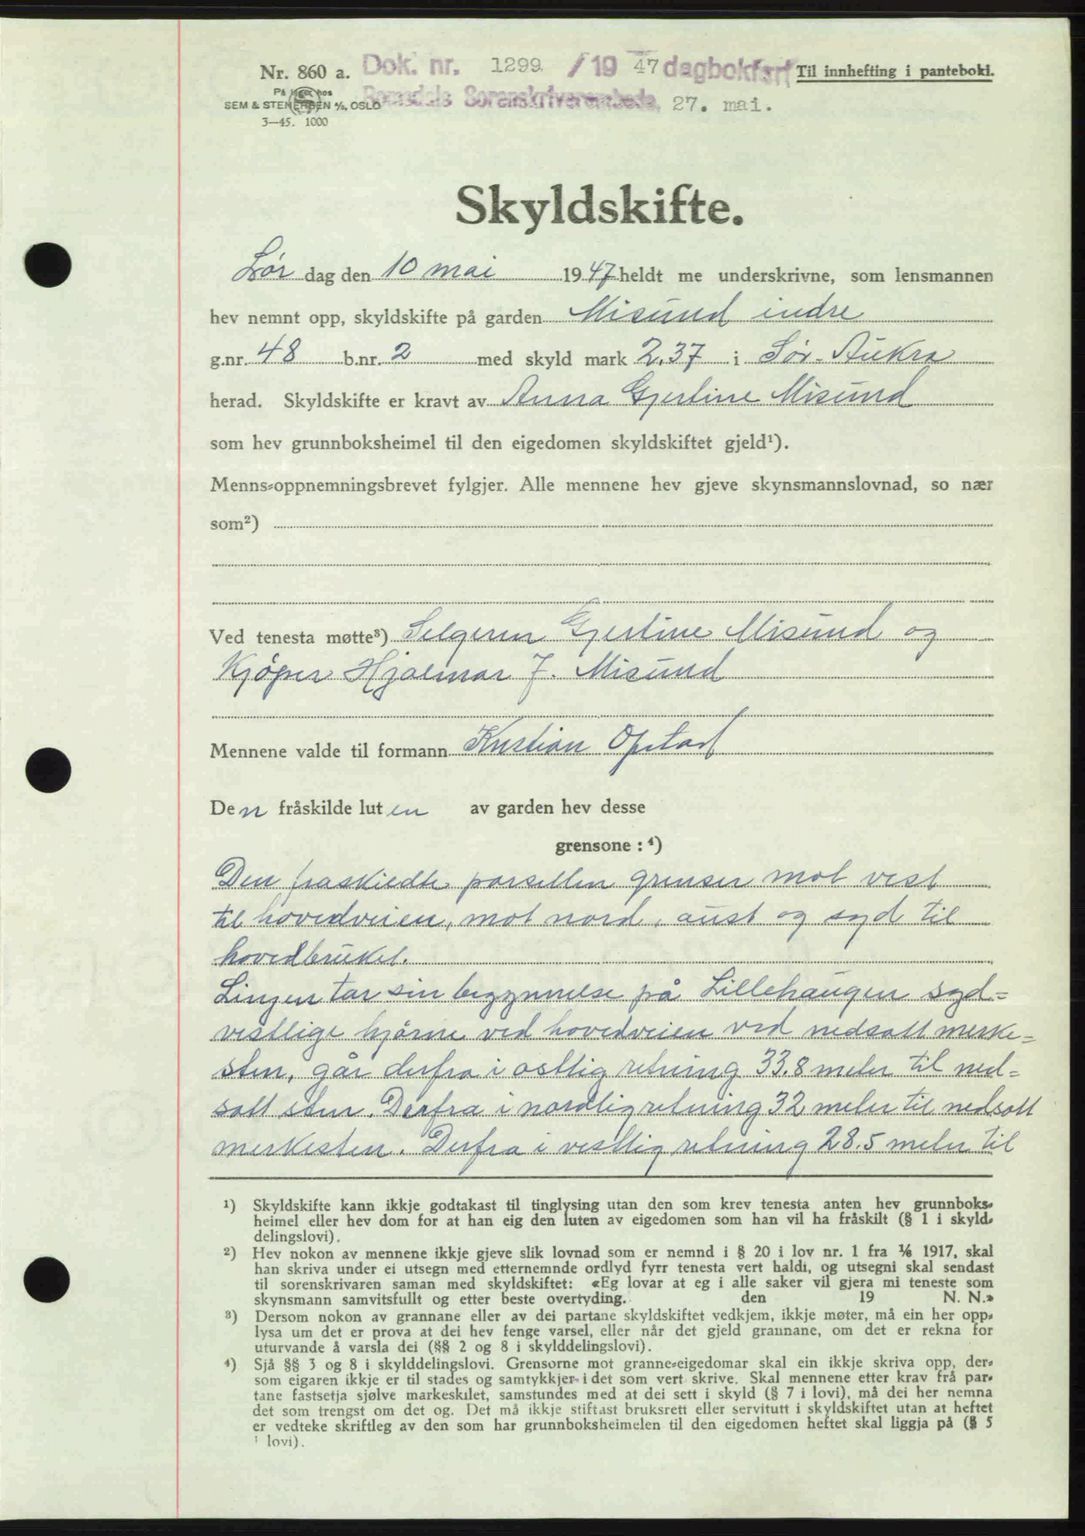 Nr. 860 a. Dok. nr. 1299 / 19 47 dagbokført Til innhefting i panteboki.
På lager hos
SEM & STENERSEN A/S, OSLO Romsdals Sorenskriverembede, 27. mai.
3—45. 1000
Skyldskifte.
Lør dag den 10 mai 1947 heldt me underskrivne, som lensmannen
hev nemnt opp, skyldskifte på garden Misund indre
g.nr. 48 b.nr. 2 med skyld mark 2.37 i Sør-Aukra
herad. Skyldskifte er kravt av Anna Gjertine Misund
som hev grunnboksheimel til den eigedomen skyldskiftet gjeld¹).
Menns-oppnemningsbrevet fylgjer. Alle mennene hev gjeve skynsmannslovnad, so nær
som²)
Ved tenesta møtte³) Selgeren Gjertine Misund og
Kjøper Hjalmar J. Misund
Mennene valde til formann Kristian Opstad
Den fråskilde luten av garden hev desse
grensone : ⁴)
Den fraskiedte parsellen grenser mot vest
til hovedveien, mot nord, aust og syd til
hovedbruket.
Linjen tar sin begynnelse på Lillehaugen syd-
vestlige hjørne ved hovedveien ved nedsatt merke-
sten, går derfra i østlig retning 33.8 meter til ned-
satt sten. Derfra i nordlig retning 32 meter til nedsatt
merkesten. Derfra i vestlig retning 28.5 meter til
¹) Skyldskifte kann ikkje godtakast til tinglysing utan den som krev tenesta anten hev grunnboks-
heimel eller hev dom for at han eig den luten av eigedomen som han vil ha fråskilt (§ 1 i skyld-
delingslovi).
²) Hev nokon av mennene ikkje gjeve slik lovnad som er nemnd i § 20 i lov nr. 1 fra ⅙ 1917, skal
han skriva under ei utsegn med etternemnde ordlyd fyrr tenesta vert haldi, og utsegni skal sendast
til sorenskrivaren saman med skyldskiftet: «Eg lovar at eg i alle saker vil gjera mi teneste som
skynsmann samvitsfullt og etter beste overtyding. den 19 N. N.»
³) Dersom nokon av grannane eller av dei partane skyldskiftet vedkjem, ikkje møter, må ein her opp-
lysa um det er prova at dei hev fenge varsel, eller når det gjeld grannane, om det er rekna for
uturvande å varsla dei (§§ 2 og 8 i skylddelingslovi).
⁴) Sjå §§ 3 og 8 i skylddelingslovi. Grensorne mot granne-eigedomar skal ein ikkje skriva opp, der-
som eigaren ikkje er til stades og samtykkjer i det som vert skrive. Skal mennene etter krav frå par-
tane fastsetja sjølve markeskilet, samstundes med at dei sett i skyld (§ 7 i lovi), må dei her nemna
det som trengst om det og. Det må ikkje stiftast bruksrett eller servitutt i skyldskiftet utan at heftet
er vedteke skriftleg av den som har grunnboksheimelen til den eigedomen heftet skal liggja på (§ 5
i lovi).